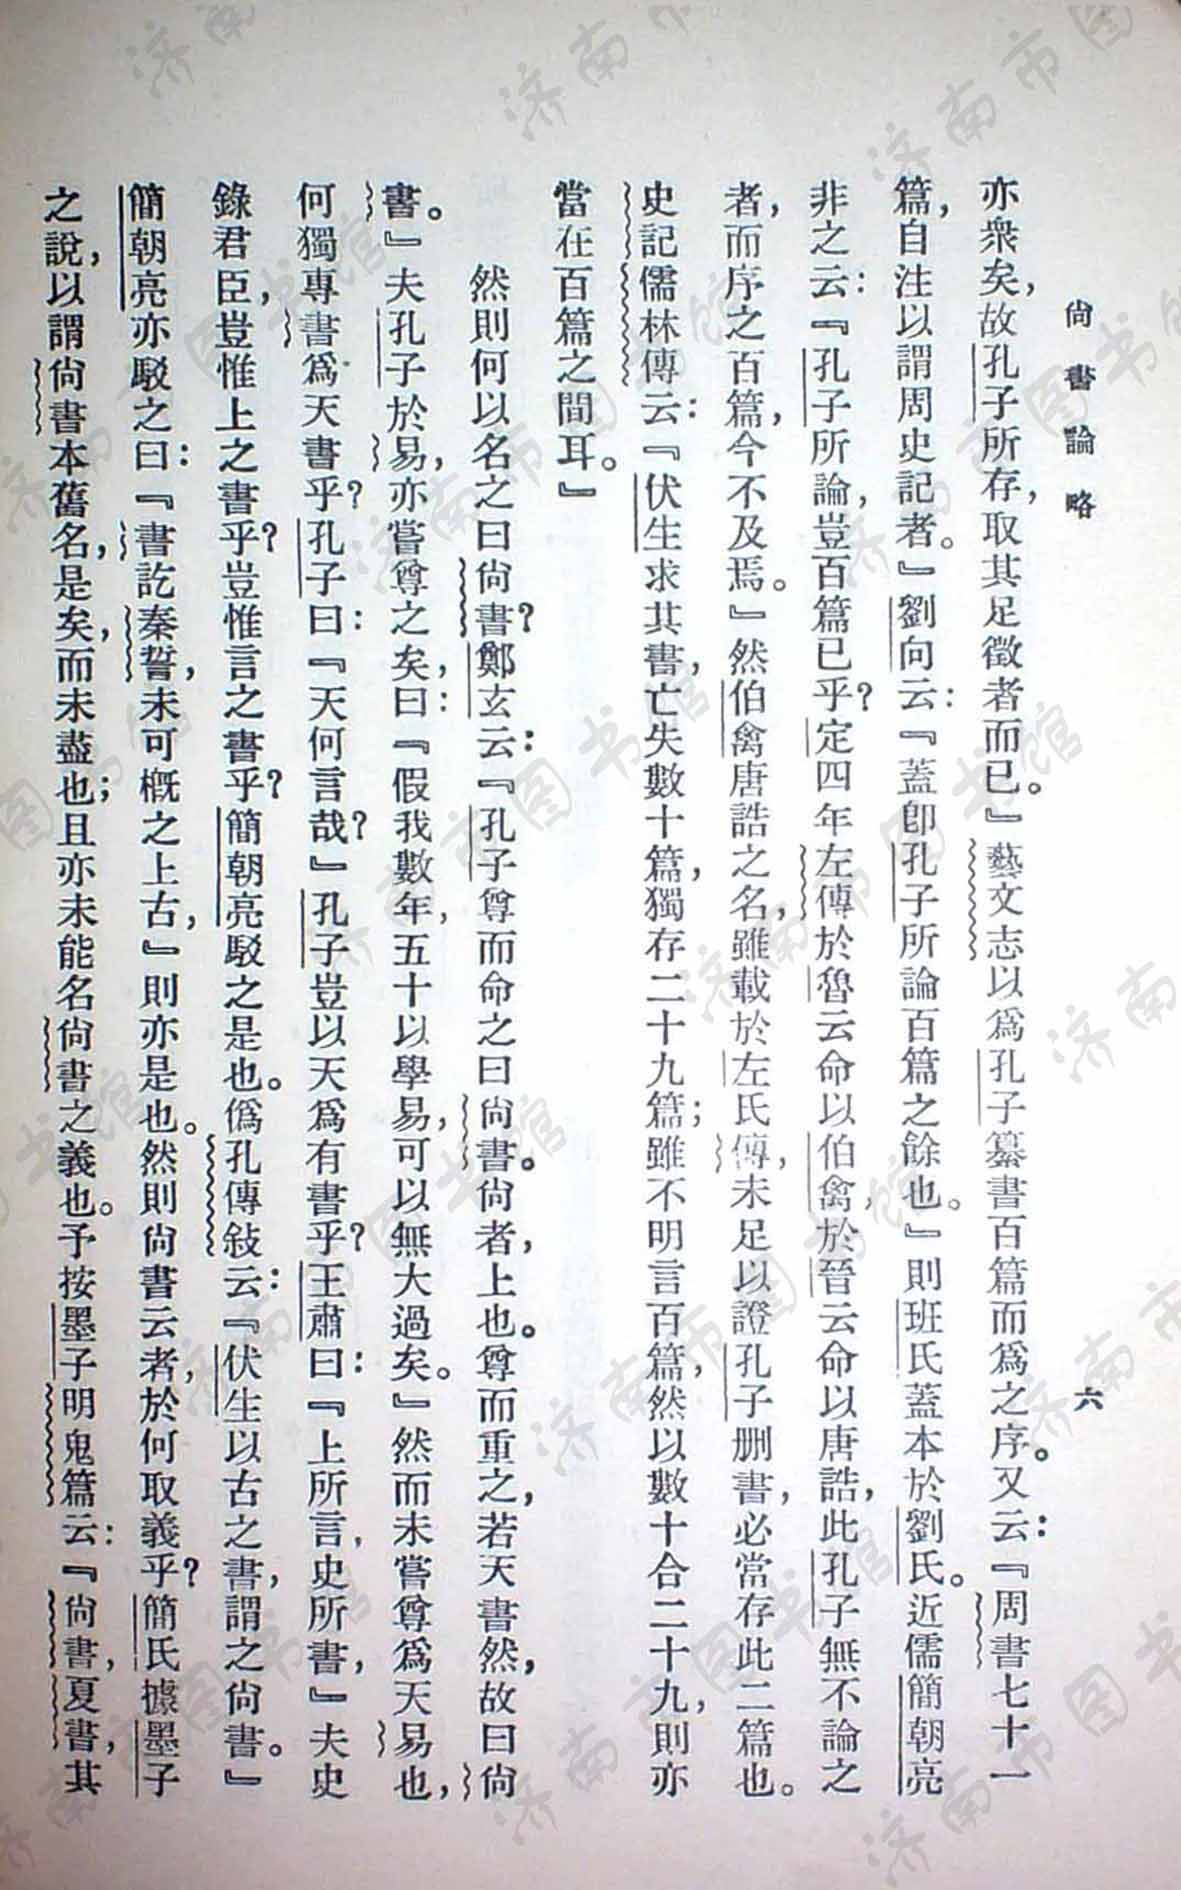 尙書論略
六
亦衆矣，故孔子所存，取其足徵者而已。』藝文志以爲孔子纂書百篇而爲之序。又云：『周書七十一
篇，自注以謂周史記者。』劉向云：『蓋卽孔子所論百篇之餘也。』則班氏蓋本於劉氏。近儒簡朝亮
非之云：『孔子所論，豈百篇已乎？定四年左傳於魯云命以伯禽，於晉云命以唐誥，此孔子無不論之
者，而序之百篇，今不及焉。』然伯禽唐誥之名，雖載於左氏傳，未足以證孔子删書，必當存此二篇也。
史記儒林傳云：『伏生求其書，亡失數十篇，獨存二十九篇；雖不明言百篇，然以數十合二十九，則亦
當在百篇之間耳。』
然則何以名之曰尙書？鄭玄云：『孔子尊而命之曰尙書。尙者，上也。尊而重之，若天書然，故曰尙
書。』夫孔子於易，亦嘗尊之矣，曰：『假我數年，五十以學易，可以無大過矣。』然而未嘗尊爲天易也，
何獨專書爲天書乎？孔子曰：『天何言哉？』孔子豈以天爲有書乎？王肅曰：『上所言，史所書，』夫史
錄君臣，豈惟上之書乎？豈惟言之書乎？簡朝亮駁之是也。僞孔傳敍云：『伏生以古之書，謂之尙書。』
簡朝亮亦駁之曰：『書訖秦誓，未可槪之上古，』則亦是也。然則尙書云者，於何取義乎？簡氏據墨子
之說，以謂尙書本舊名，是矣，而未盡也；且亦未能名尙書之義也。予按墨子明鬼篇云：『尙書，夏書，其